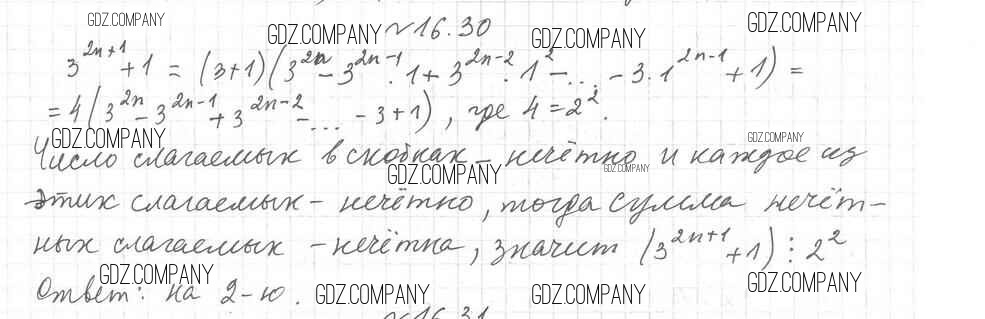 GDZ.COMPANY
№16.30
GDZ.COMPANY
GDZ.COMPANY
GDZ.COMPANY
3^{2n+1} + 1 = (3+1)(3^{2n} - 3^{2n-1} · 1 + 3^{2n-2} · 1^2 - ... - 3 · 1^{2n-1} + 1) =
= 4(3^{2n} - 3^{2n-1} + 3^{2n-2} - ... - 3 + 1), где 4 = 2^2.
GDZ.COMPANY
GDZ.COMPANY
Число слагаемых в скобках - нечётно и каждое из
GDZ.COMPANY
GDZ.COMPANY
этих слагаемых - нечётно, тогда сумма нечёт-
ных слагаемых - нечётна, значит (3^{2n+1} + 1) ⋮ 2^2
GDZ.COMPANY
GDZ.COMPANY
Ответ: на 2-ю.
GDZ.COMPANY
GDZ.COMPANY
№16.31